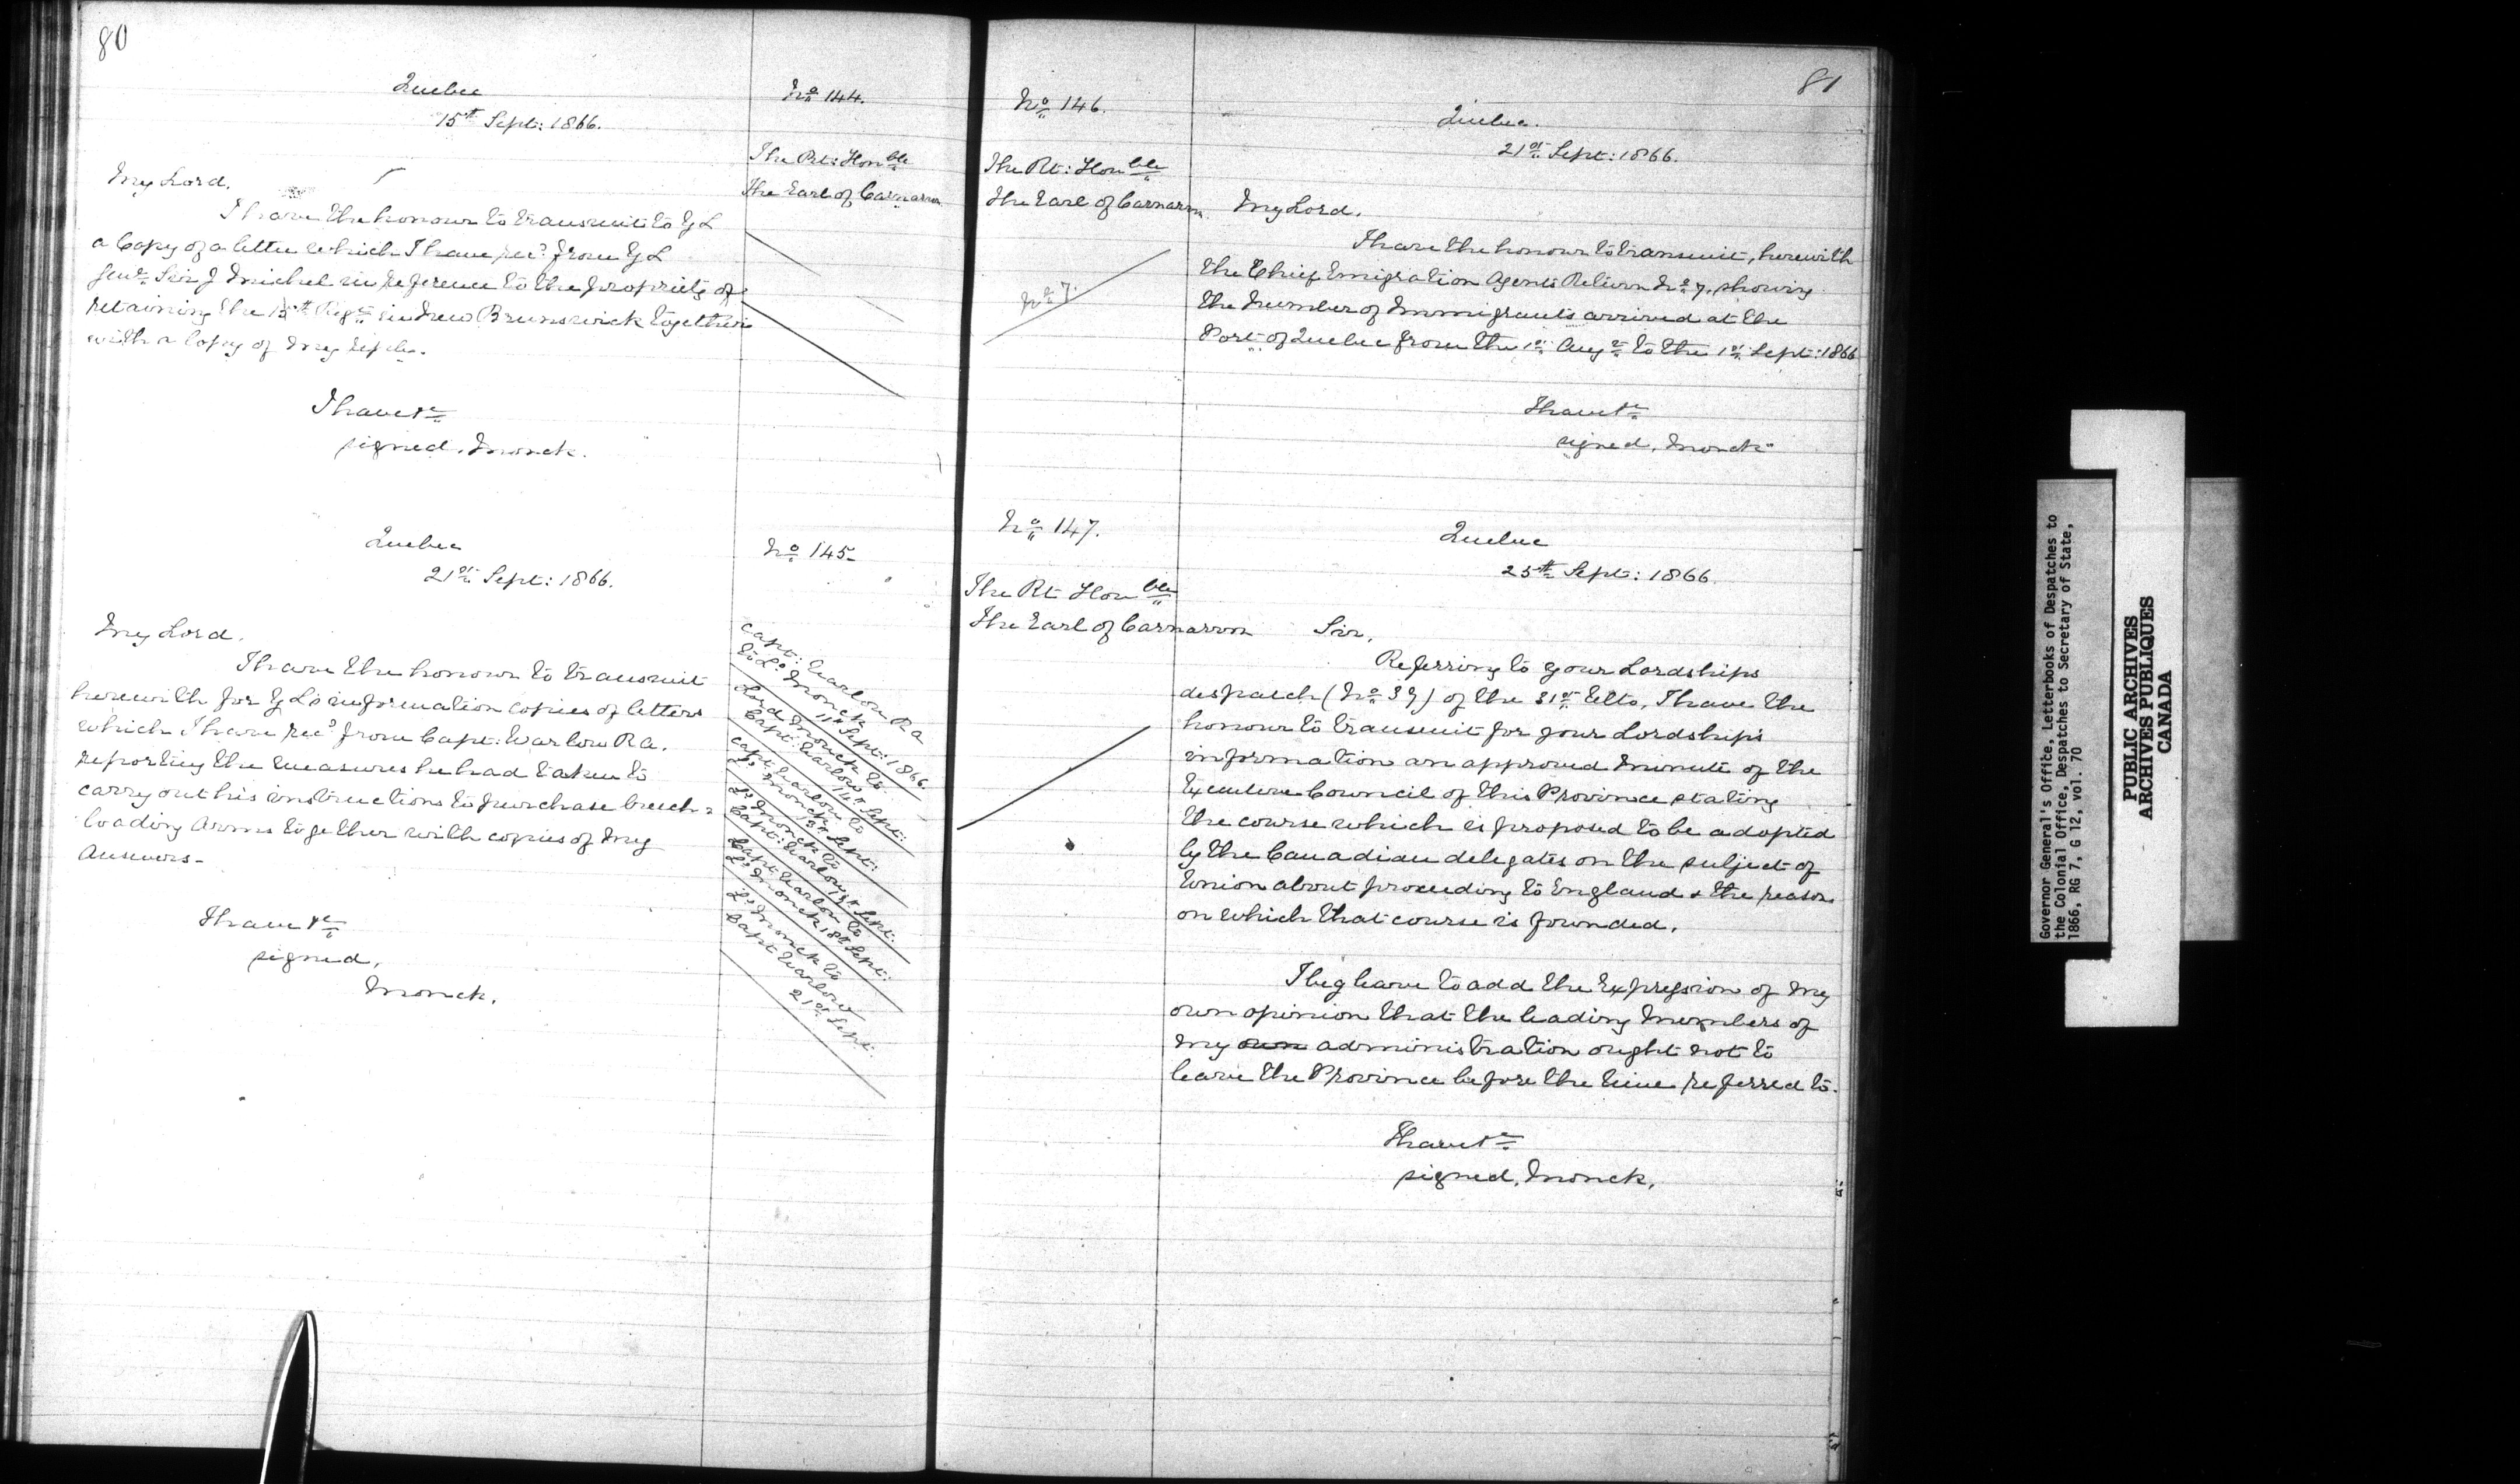 80
Quebec
15th Sept: 1866.
No 144.
The Rt: Honble
The Earl of Carnarvon
My Lord,
I have the honour to transmit to Y L
a Copy of a letter which I have recd from Y L
Genl Sir J Michel in reference to the propriety of
retaining the 15th Regt in New Brunswick together
with a Copy of my reply.
I have &c
signed, Monck.
Quebec
21st Sept: 1866.
No 145
My Lord,
I have the honour to transmit
herewith for Y L's information copies of letters
which I have recd from Capt: Warlow R.A.
reporting the measures he had taken to
carry out his instructions to purchase breech=
loading Arms together with copies of my
Answers-
I have &c
signed,
Monck.
Capt: Warlow RA
to Ld Monck
11th Sept: 1866.
Lord Monck to
Capt: Warlow
14th Sept:
Capt: Warlow to
Ld Monck
Sept:
Ld Monck to
Capt: Warlow
Sept:
Capt Warlow to
Ld Monck 18th Sept:
Ld Monck to
Capt Warlow
21st Sept:
81
No 146.
Quebec.
21st Sept: 1866.
The Rt: Honble
The Earl of Carnarvon
My Lord,
No 7.
I have the honour to transmit, herewith
the Chief Emigration Agents Return No 7. showing
the number of Immigrants arrived at the
Port of Quebec from the 1st Augt to the 1st Sept: 1866
I have &c
signed, Monck
No 147.
Quebec
25th Sept: 1866.
The Rt Honble
The Earl of Carnarvon
Sir,
Referring to your Lordships
despatch (No 39) of the 31st Ulto, I have the
honour to transmit for your Lordship's
information an approved Minute of the
Executive Council of this Province stating
the course which is proposed to be adopted
by the Canadian delegates on the subject of
Union about proceeding to England & the reasons
on which that course is founded.
I beg leave to add the Expression of my
own opinion that the leading Members of
my own administration ought not to
leave the Province before the time referred to.
I have &c
signed, Monck.
Governor General's Office, Letterbooks of Despatches to
the Colonial Office, Despatches to Secretary of State,
1866, RG 7, G 12, vol. 70
PUBLIC ARCHIVES
ARCHIVES PUBLIQUES
CANADA